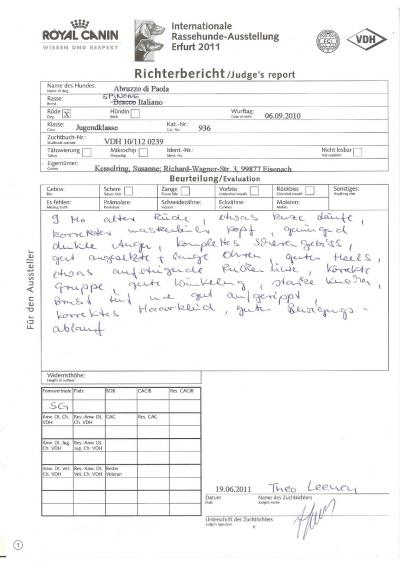 ROYAL CANIN
WISSEN UND RESPEKT
Internationale
Rassehunde-Ausstellung
Erfurt 2011
FCI
VDH
Richterbericht/Judge's report
Name des Hundes: Abruzzo di Paola
Name of dog
Rasse: SPINONE
Breed Bracco Italiano
Rüde Hündin Wurftag: 06.09.2010
Dog Bitch Date of birth
Klasse: Jugendklasse Kat.-Nr.: 936
Class Cat. No.
Zuchtbuch-Nr.: VDH 10/112 0239
Studbook number
Tätowierung Mikrochip Ident.-Nr.: Nicht lesbar
Tattooing Microchip Ident.-No. Not readable
Eigentümer: Kesselring, Susanne; Richard-Wagner-Str. 3, 99877 Eisenach
Owner
Beurteilung/Evaluation
Gebiss: Schere Zange Vorbiss Rückbiss Sonstiges:
Es fehlen: Prämolare: Schneidezähne: Eckzähne: Molaren:
9 Mo alter Rüde, etwas kurze Läufe,
korrekter maskuliner Kopf, genügend
dunkle Augen, komplettes Scherengebiss,
gut angesetzte lange Ohren, guter Hals,
etwas aufsteigende Rückenlinie, korrekte
Gruppe, gute Winkelung, starke Knochen,
Brust tief und gut aufgerippt,
korrektes Haarkleid, guter Bewegungs-
ablauf
Für den Aussteller
Widerristhöhe:
Height at withers
Formwertnote Platz BOB CACIB Res. CACIB
SG
Anw. Dt. Ch. VDH Res.-Anw. Dt. Ch. VDH CAC Res. CAC
Anw. Dt. Jug. Ch. VDH Res.-Anw. Dt. Jug. Ch. VDH
Anw. Dt. Vet. Ch. VDH Res.-Anw. Dt. Vet. Ch. VDH Bester Veteran
19.06.2011 Theo Leenen
Datum Name des Zuchtrichters
Date Name of judge
Unterschrift des Zuchtrichters
Judge's signature
1